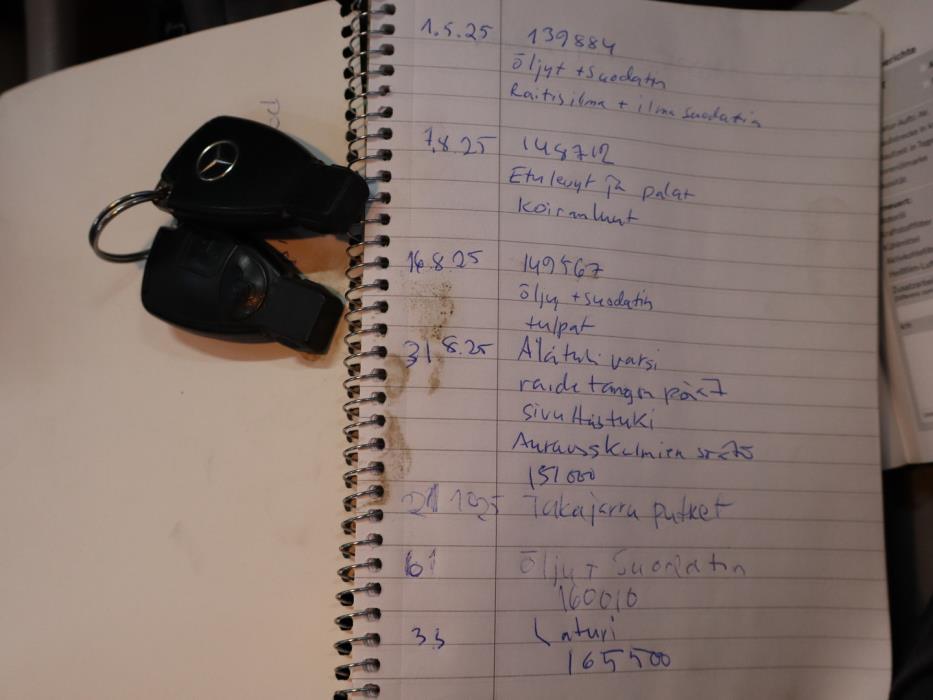 1.5.25 139884
Öljyt + suodatin
Raitis ilma + ilma suodatin
7.8.25 148712
Etulevyt ja palat
Koiranluut
16.8.25 149567
Öljy + suodatin
tulpat
31 8.25 Alatuki varsi
raide tangon päät
sivuttaistuki
Aurauskulmien säätö
151000
21 10 25 Takajarru putket
61 Öljy + Suodatin
160010
33 Laturi
165500